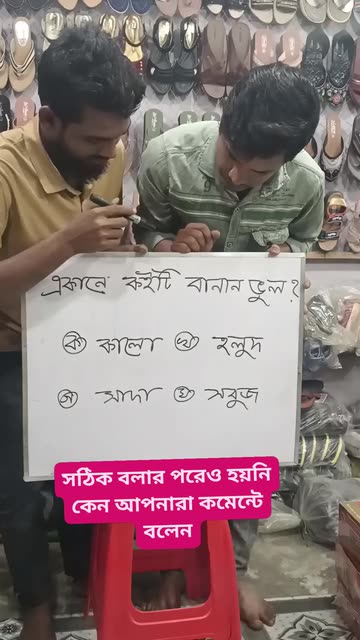 একানে কইটি বানান ভুল?
ক কালো খ হলুদ
গ সাদা ঘ সবুজ
সঠিক বলার পরেও হয়নি
কেন আপনারা কমেন্টে
বলেন